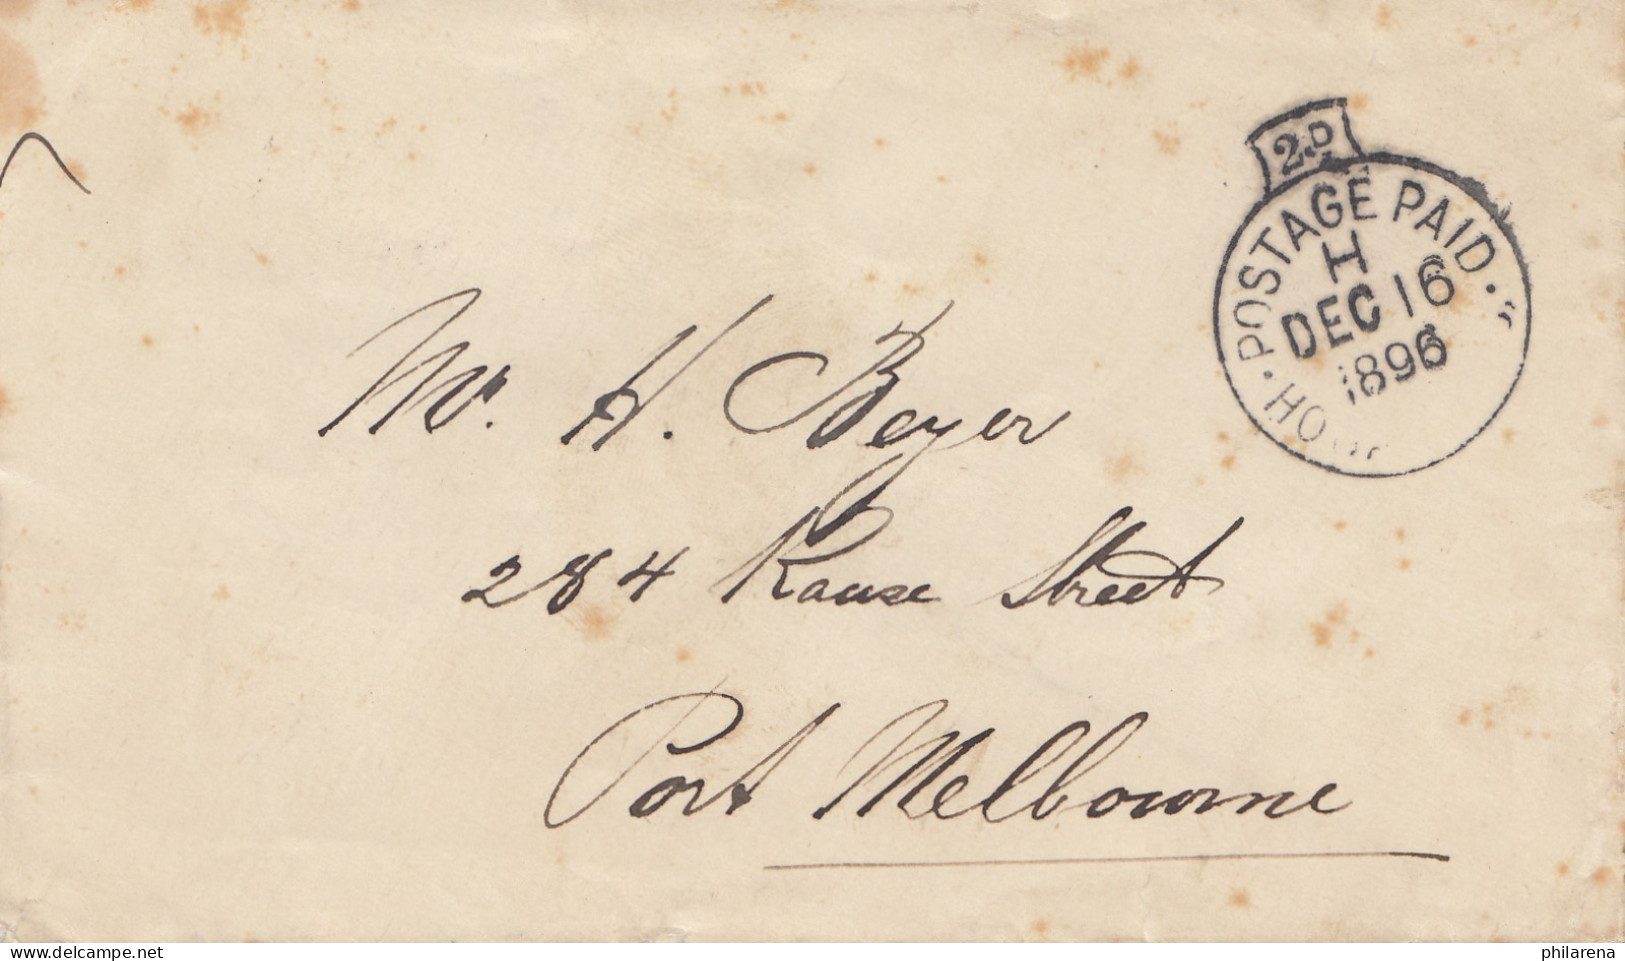 2D
POSTAGE PAID
H
DEC 16
1896
Mr. H. Beyer
284 Rouse Street
Port Melbourne
www.delcampe.net
philarena